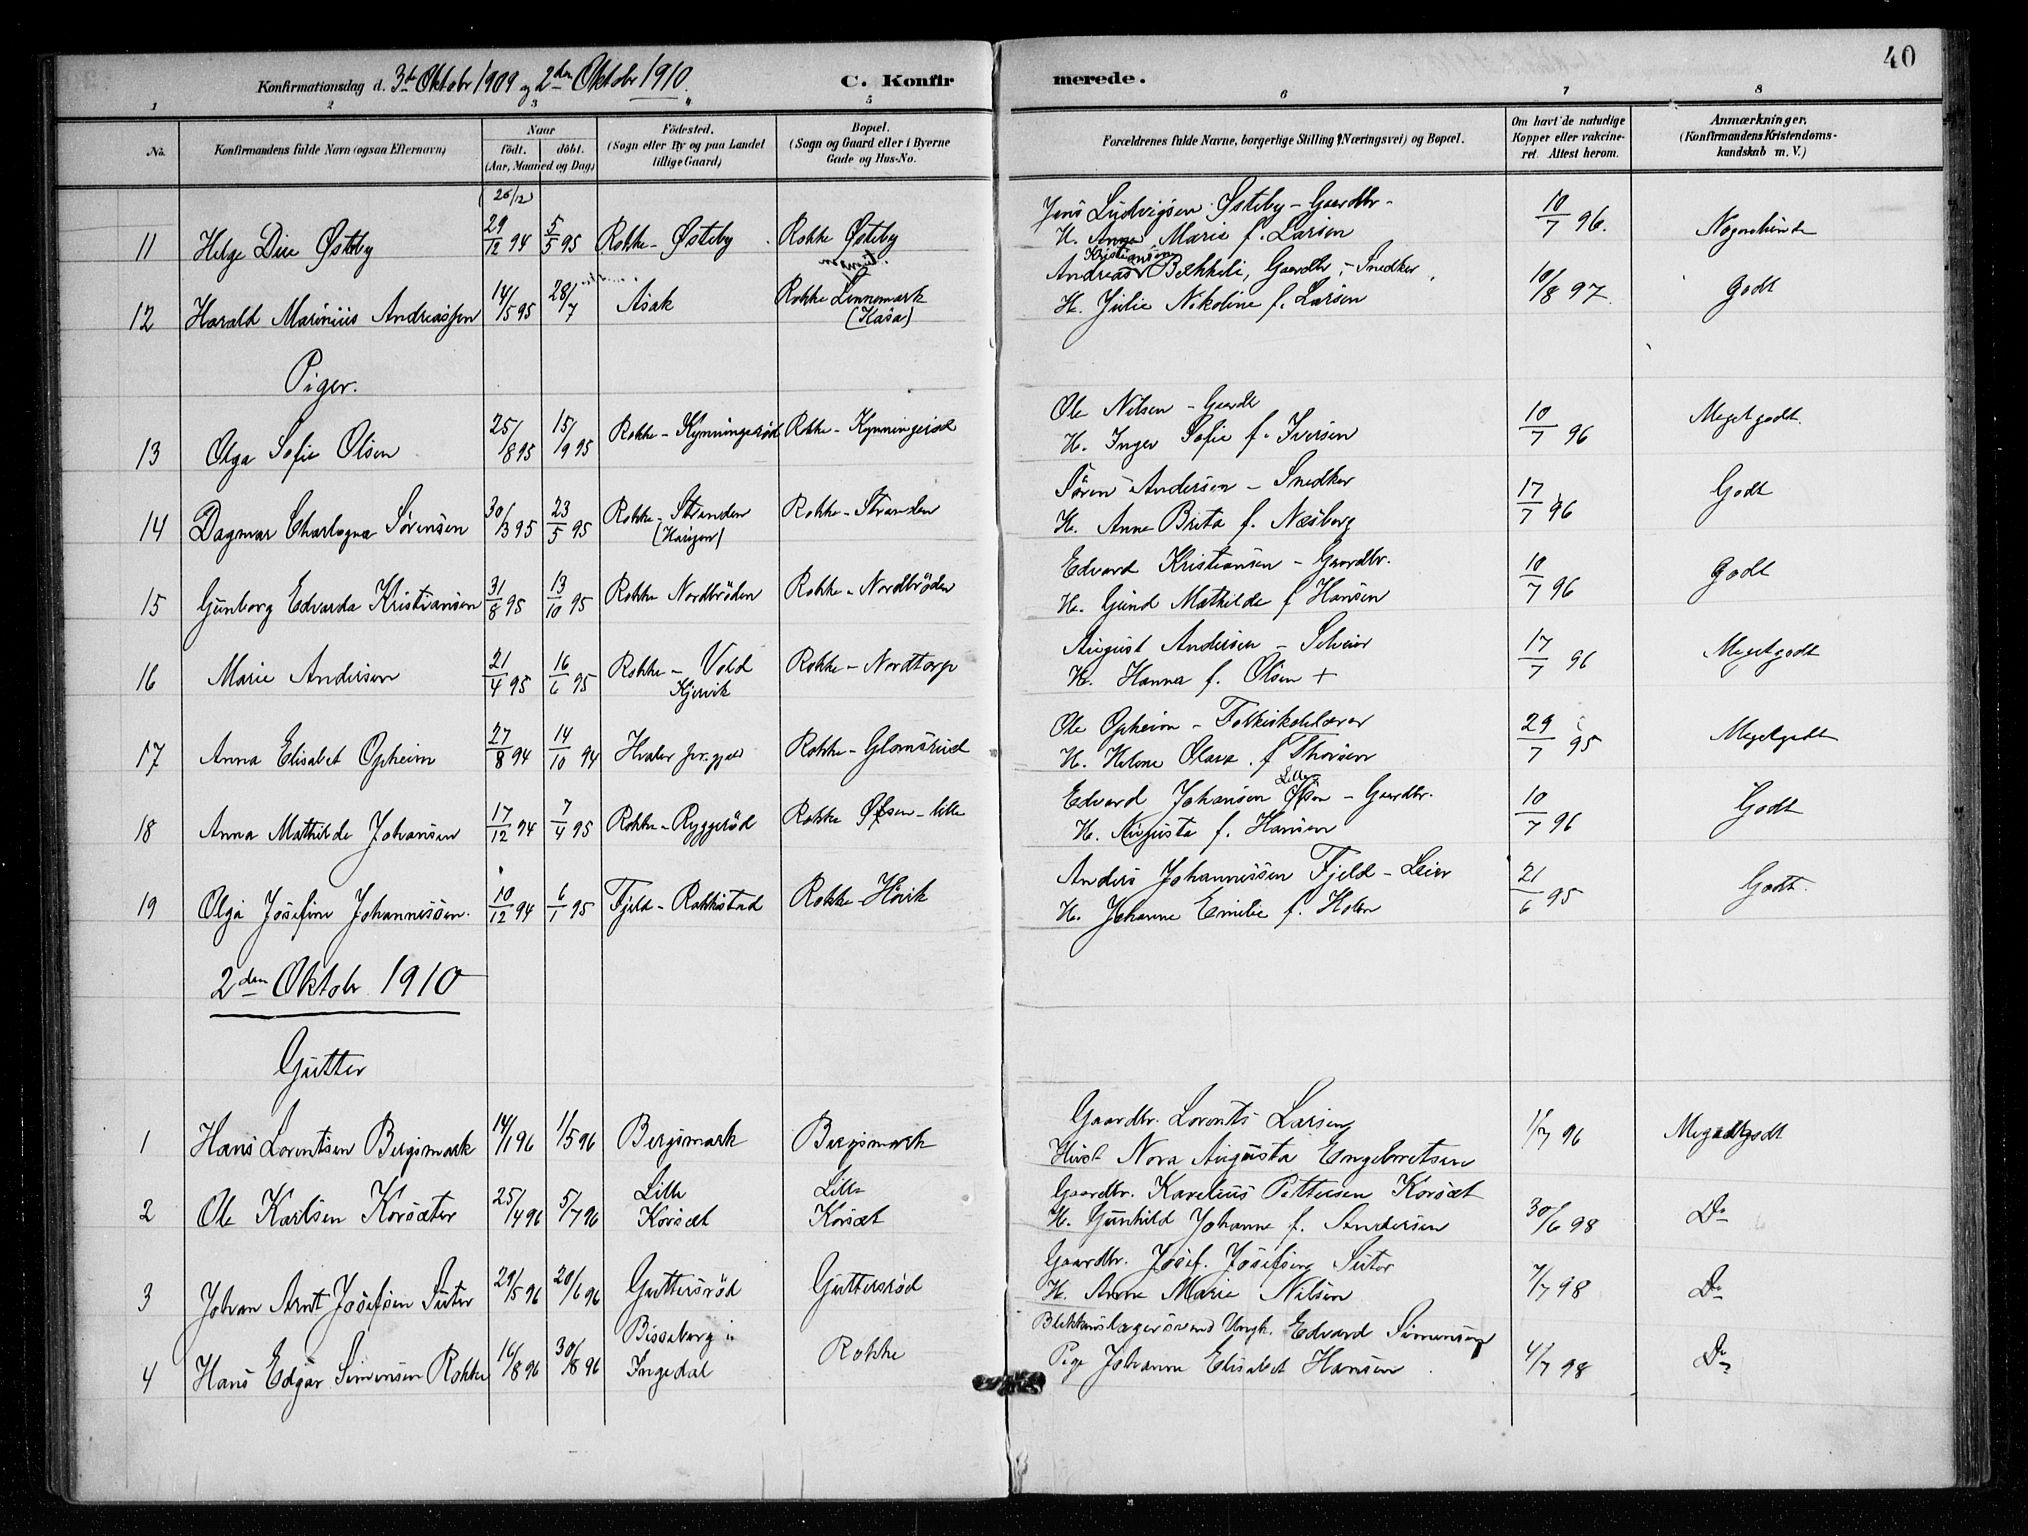 40
Konfirmationsdag d. 3die Oktobr 1909 og 2den Oktobr 1910.
C. Konfirmerede.
1 2 3 4 5 6 7 8
No.
Konfirmandens fulde Navn (ogsaa Efternavn)
Naar
födt. döbt.
(Aar, Maaned og Dag)
Födested.
(Sogn eller By og paa Landet
tillige Gaard)
Bopæl.
(Sogn og Gaard eller i Byerne
Gade og Hus-No.
Forældrenes fulde Navne, borgerlige Stilling (Næringsvei) og Bopæl.
Om havt de naturlige
Kopper eller vakcine-
ret. Attest herom.
Anmærkninger.
(Konfirmandens Kristendoms-
kundskab m. V.)
(26/12)
Jens Ludvigsen Østeby - Gaardbr.
11 Helge Østeby 29/12 94 5/5 95 Rokke - Østeby Rokke Østeby H. Anna Marie f. Larsen 10/7 96.
Kristiansen
Andreas Bekkeli, Gaardbr. - Snedker
12 Harald Marinius Andreassen 14/5 95 28/7 Asak Rokke Linnemark H. Julie Nikoline f. Larsen 10/8 97 Godt
(Kasa)
Piger.
Ole Nilsen - Gaardb
13 Olga Sofie Olsen 25/8 95 15/9 95 Rokke - Kynningsrød Rokke - Kynningsrød H. Inger Sofie f. Iversen 10/7 96 Megetgodt.
Søren Andersen - Snedker
14 Dagmar Charlogna Sørensen 30/3 95 23/5 95 Rokke - Stranden Rokke - Stranden H. Anne Brita f. Næsborg 17/7 96 Godt
Edvard Kristiansen - Gaardbr.
15 Gunborg Edvarda Kristiansen 31/8 95 13/10 95 Rokke Nordbrøden Rokke - Nordbrøden H. Gund Mathilde f Hansen 10/7 96 Godt
August Andersen - Selveier
16 Marie Andersen 21/4 95 16/6 95 Rokke - Vold Rokke - Nordtorp H. Hanna f. Olsen + 17/7 96 Megetgodt
Kjervik
Ole Opheim - Folkeskolelærer
17 Anna Elisabet Opheim 27/8 94 14/10 94 Hvaler pr.gjeld Rokke - Glomsrud H. Helene Olava f Thorsen 29/7 95 Megetgodt
Lille
Edvard Johansen - Gaardbr.
18 Anna Mathilde Johansen 17/12 94 7/4 95 Rokke - Ryggerød Rokke - lille H. Augusta f. Hansen 10/7 96 Godt
Anders Johannessen Fjeld - Leier
19 Olga Josefine Johannessen. 10/12 94 6/1 95 Fjeld - Rokkestad Rokke - Hovik H. Johanne Emilie f. Holm 21/6 95 Godt.
2den Oktobr 1910
Gutter
Gaardbr. Lorents Larsen
1 Hans Lorentsen Bergsmark 14/1 96 1/5 96 Bergsmark Bergsmark Hust Nora Augusta Engebretsen 1/7 96 Megetgodt
Lille Lille Gaardbr. Karelius Pettersen Korsæt
2 Ole Karlsen Korsæter 25/4 96 5/7 96 Korsæt Korsæt H. Gunhild Johanne f. Andersen 30/6 98 Do
Gaardbr. Josef Josefsen Suter
3 Johan Arnt Josefsen Suter 29/5 96 20/6 96 Guttersrød Guttersrød H. Anne Marie Nilsen 7/7 98 Do
Bissaberg i Blikkenslagersvend Ungk. Edvard Simensen
4 Hans Edgar Simensen Rokke 16/8 96 30/8 96 Ingedal Rokke Pige Johanne Elisabet Hansen 4/7 98 Do